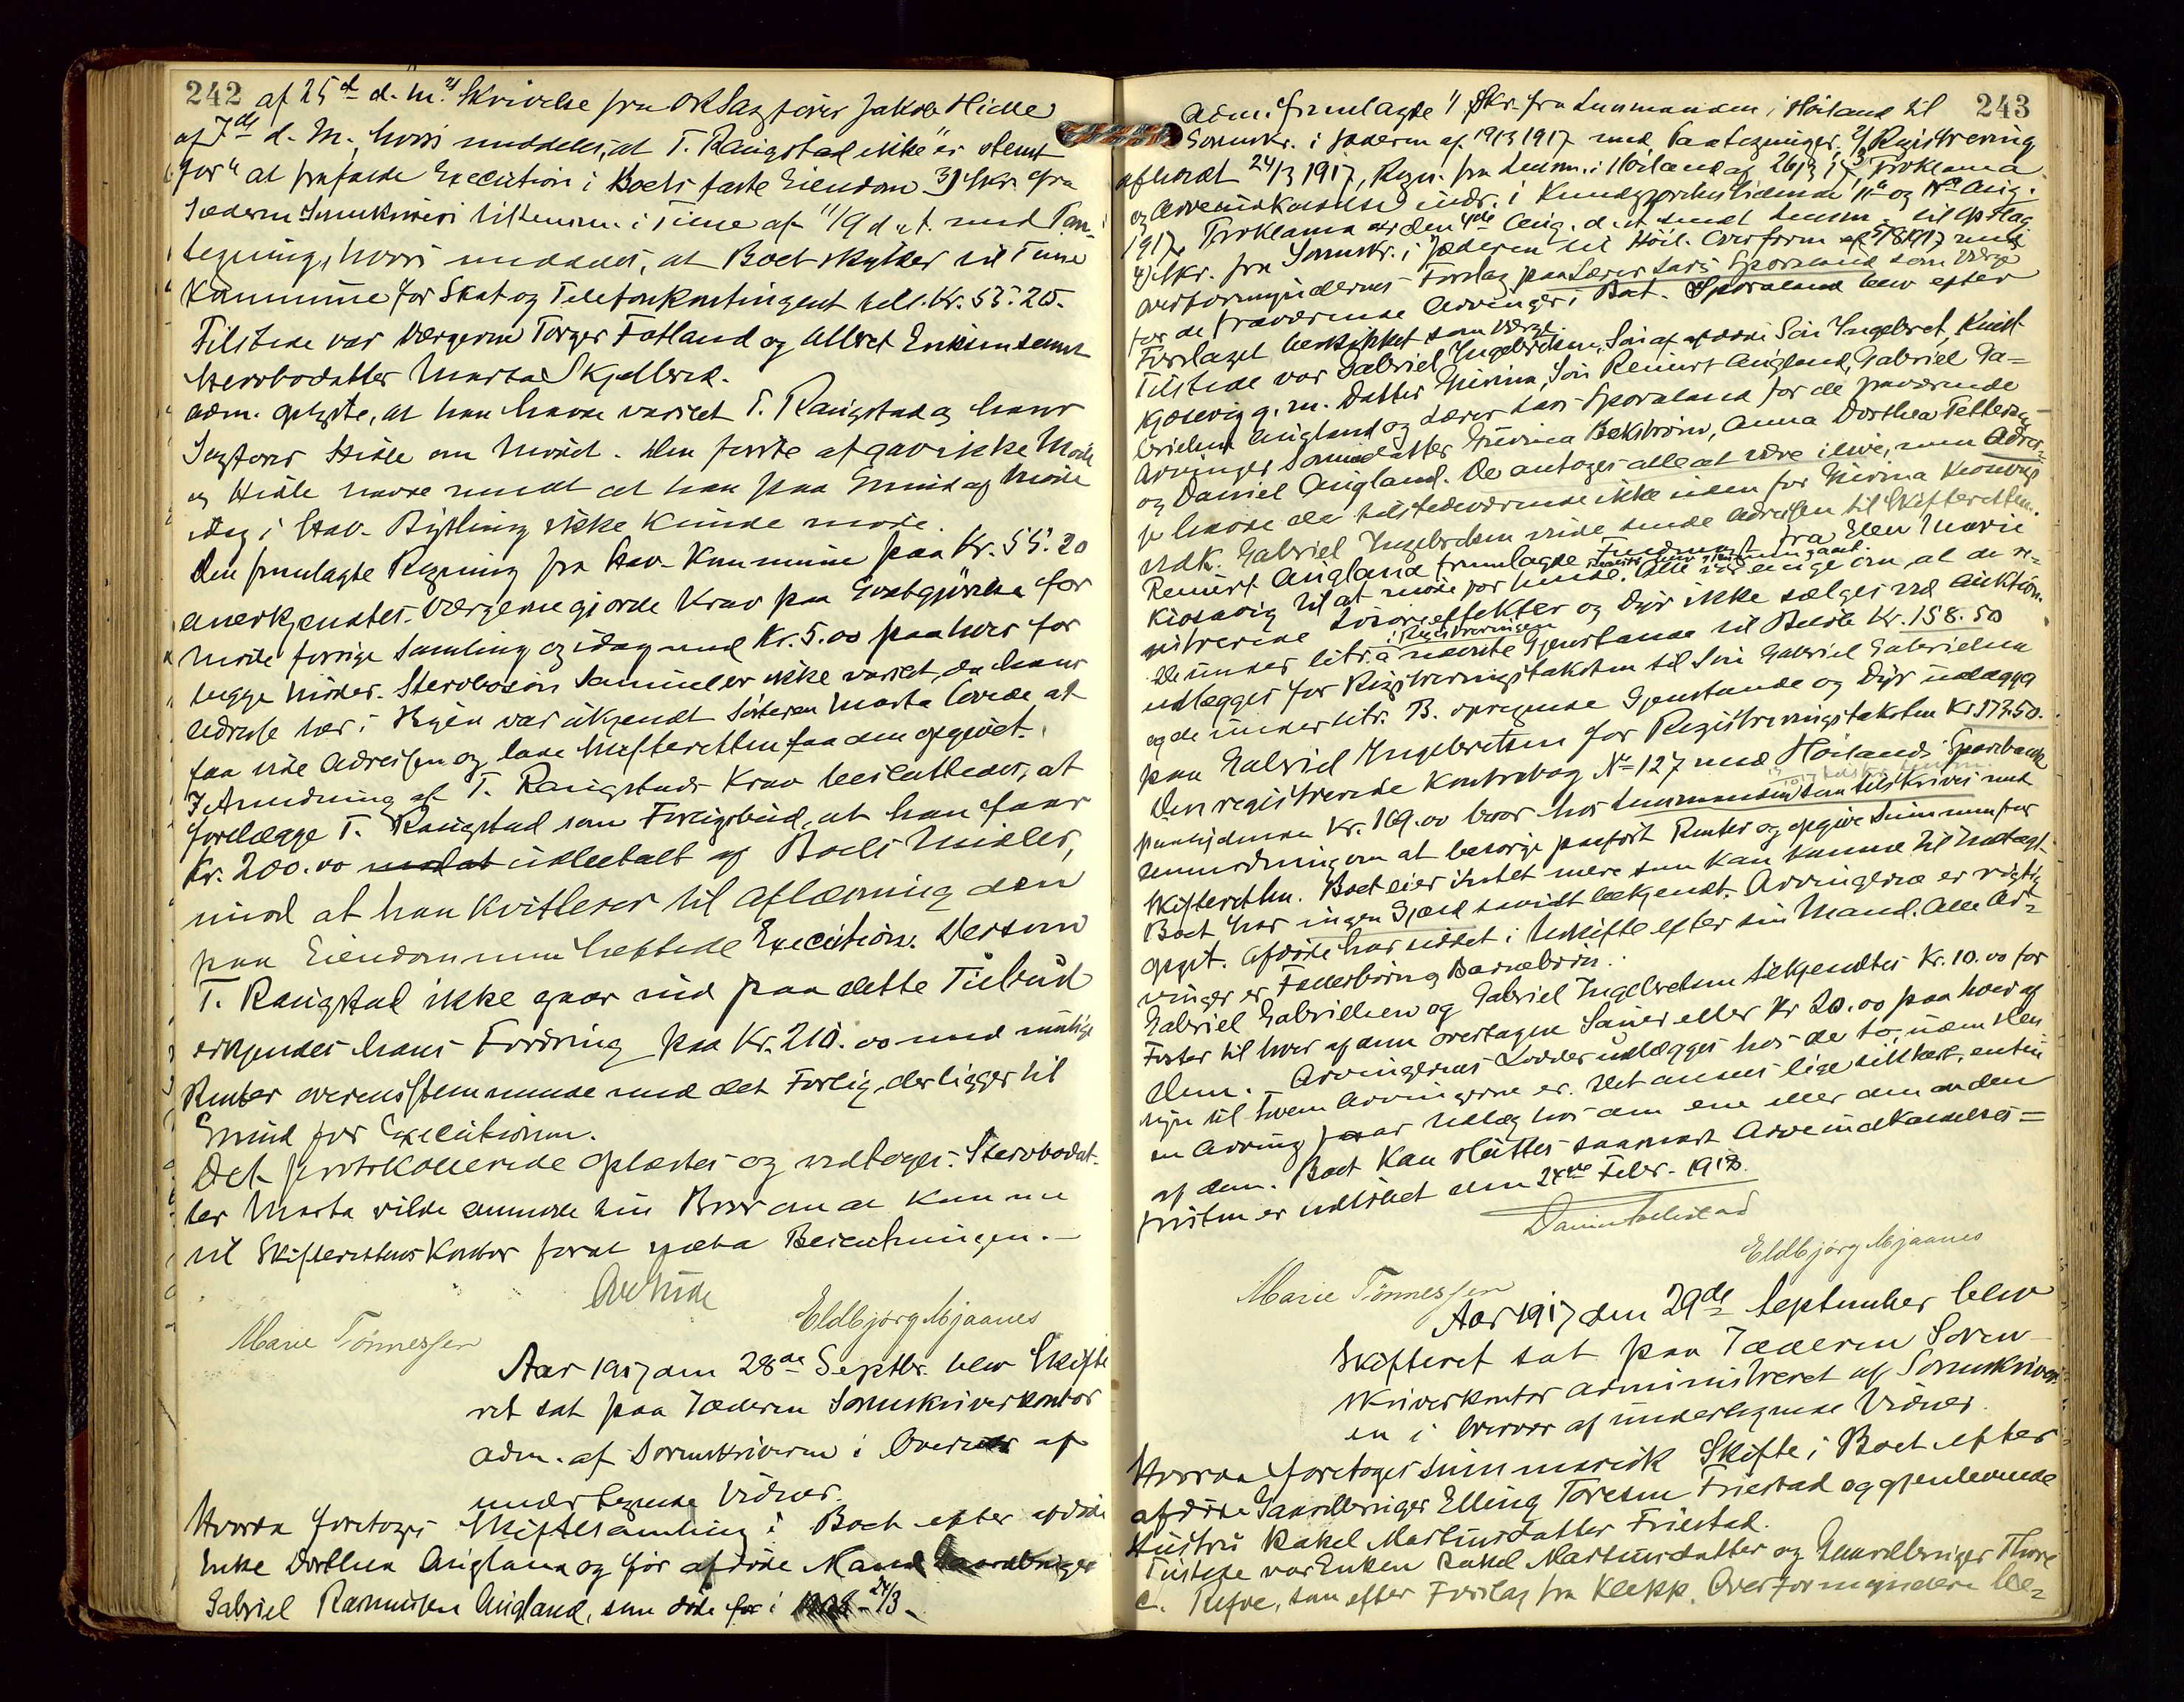 242
af 25de d. M. 2) Skrivelse fra OR Sagfører Jakob Hidle
af 7de d. M., hvori meddeles, at T. Raugstad ikke "er stemt
for" at frafalde Execution i Boets faste Eiendom 3) Skr. fra
Jæderen Sorenskriveri til Lensm. i Time af 11/9 d. A. med Paa-
tegning, hvori meddeles, at Boet skylder til Time
Kommune for Skat og Telefonkontingent tils. Kr. 53.20.
Tilstede var Værgerne Torger Fotland og Albret Erikson samt
Stervbodatter Marta Skjelbred.
Adm. oplyste, at han havde varslet T. Raugstad og hans
Sagfører Hidle om Mødet. Den første afgav ikke Møde
og Hidle havde meldt at han paa Grund af Møde
idag i Stav. Bystyring ikke kunde møde.
Den fremlagte Regning fra Stav. Kommune paa Kr. 55.20
anerkjendtes. Værgerne gjorde Krav paa Godtgjørelse for
Møde forrige Samling og idag med Kr. 5.00 paa hver for
begge Møder. Stervbosøn Samuel er ikke varslet, da hans
Adresse her i Byen var ukjendt Søsteren Marta lovede at
faa vide Adressen og lade Skifteretten faa den opgivet.
I Anledning af T. Raugstads Krav besluttedes, at
forelægge T. Raugstad som Forligsbud, at han faar
Kr. 200.00 udbetalt af Boets Midler,
mod at han kvitterer til Aflæsning den
paa Eiendommen heftede Execution. Dersom
T. Raugstad ikke gaar ind paa dette Tilbud
erkjendes hans Fordring paa Kr. 210.00 med mulige
Renter overensstemmende med det Forlig, der ligger til
Grund for Executionen.
Det protokollerede oplæstes og vedtoges. Stervbodat-
ter Marta vilde anmode sin Bror om at komme
til Skifterettens Kontor forat vedta Beslutningen.–
Marie Tønnessen Eldbjørg Mjaanes
Aar 1917 den 28de Septbr. blev Skifte
ret sat paa Jæderen Sorenskriverkontor
adm. af Sorenskriveren i Overvær af
undertegnede Vidner.
Hvorda foretoges Skiftesamling i Boet efter afdøde
Enke Dorthea Augland og før afdøde Mand
Gabriel Rasmussen Augland, som døde før i 24/3–
243
Adm. fremlagde 1) Skr. fra Lensmanden i Høiland til
Sorenskr. i Jæderen af 19/3 1917 med Paategninger. 2) Registrering
afholdt 24/3 1917, Regn. fra Lensm. i Høiland af 26/3 17, 3) Proklama
og Arveindkaldelse indr. i Kundgjørelsestidende og Aug.
1917. Proklama er den 4de Aug. d. A. sendt Lensm. til Opslag
4) Skr. fra Sorenskr. i Jæderen til Høil. Overform. af 5/8 1917 med
Overformyndernes Forslag paa Lærer Lars Sporaland som Værge
for de fraværende Arvinger i Boet. Sporaland blev efter
Forslaget beskikket som Værge.
Tilstede var Gabriel Ingebretsen, Søn af afdøde Søn Ingebret,
Kjosevig g. m. Datter Gurina, Søn Reinert Augland, Gabriel Ga=
brielsen Augland og Lærer Lars Sporaland for de fraværende
Arvinger Sønnedatter Gurina Bekstrøm, Anna Dorthea
og Daniel Augland. De antoges alle at være ilive, men Adres-
se havde de tilstedeværende ikke uden for Gurina
vedk. Gabriel Ingebretsen vilde sende Adressen til Skifteretten.
Reinert Augland fremlagde Fuldmagt fra Elen Marie
Kiosavig til at møde for hende. Alle var enige om, at de re-
gistrerede Løsøreeffekter og Dyr ikke sælges ved Auktion.
De under litr. a i Registreringen nævnte Gjenstande til Beløb Kr. 158.50
udlægges for Registreringstaksten til Søn Gabriel Gabrielsen
og de under litr. B. opregnede Gjenstande og Dyr udlægges
paa Gabriel Ingebretsen for Registreringstaksten Kr. 373.50.
Den registrerede Kontrabog No 127 med Høilands Sparebank
paalydende Kr. 169.00 beror hos Lensmanden som tilskrives med
Anmodning om at besørge paaført Renter og opgive Summen for
Skifteretten. Boet eier intet mere som kan komme til Indtægt.
Boet har ingen Gjæld saavidt bekjendt. Arvingerne er rigtig
opgit. Afdøde har siddet i Uskifte efter sin Mand. Alle Ar=
vinger er Fællesbørn og Barnebørn.
Gabriel Gabrielsen og Gabriel Ingebretsen tilkjendtes Kr. 10.00 for
Foster til hver af dem overtagen Sauer eller Kr 20.00 paa hver af
dem. – Arvingernes Lodder udlægges hos de to, uden Hen
syn til hvem Arvingerne er. Det ansees lige sikkert, enten
en Arving faar Udlæg hos den ene eller den anden
af dem. Boet kan sluttes saasnart Arveindkaldelses=
fristen er udløbet den 24de Febr. 1918.
Eldbjørg Mjaanes
Marie Tønnessen
Aar 1917 den 29de September blev
Skifteret sat paa Jæderen Soren-
skriverkontor administreret af Sorenskriver-
en i Overvær af undertegnede Vidner.
Hvorda foretoges summarisk Skifte i Boet efter
afdøde Gaardbruger Elling Toresen Friestad og gjenlevende
Hustru Rakel Martinsdatter Friestad.
Tilstede var Enken Rakel Martinsdatter og Gaardbruger Thore
E. Refve, som efter Forslag fra Klepp Overformynderi be=